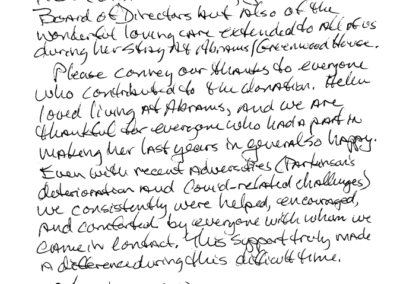 Board of Directors but also of the
wonderful loving care extended to all of us
during her stay at Abrams/Greenwood House.
Please convey our thanks to everyone
who contributed to the donation. Helen
loved living at Abrams, and we are
thankful for everyone who had a part in
making her last years in general so happy.
Even with recent adversities (Parkinson's
deterioration and Covid-related challenges)
we consistently were helped, encouraged,
and comforted by everyone with whom we
came in contact. This support truly made
a difference during this difficult time.